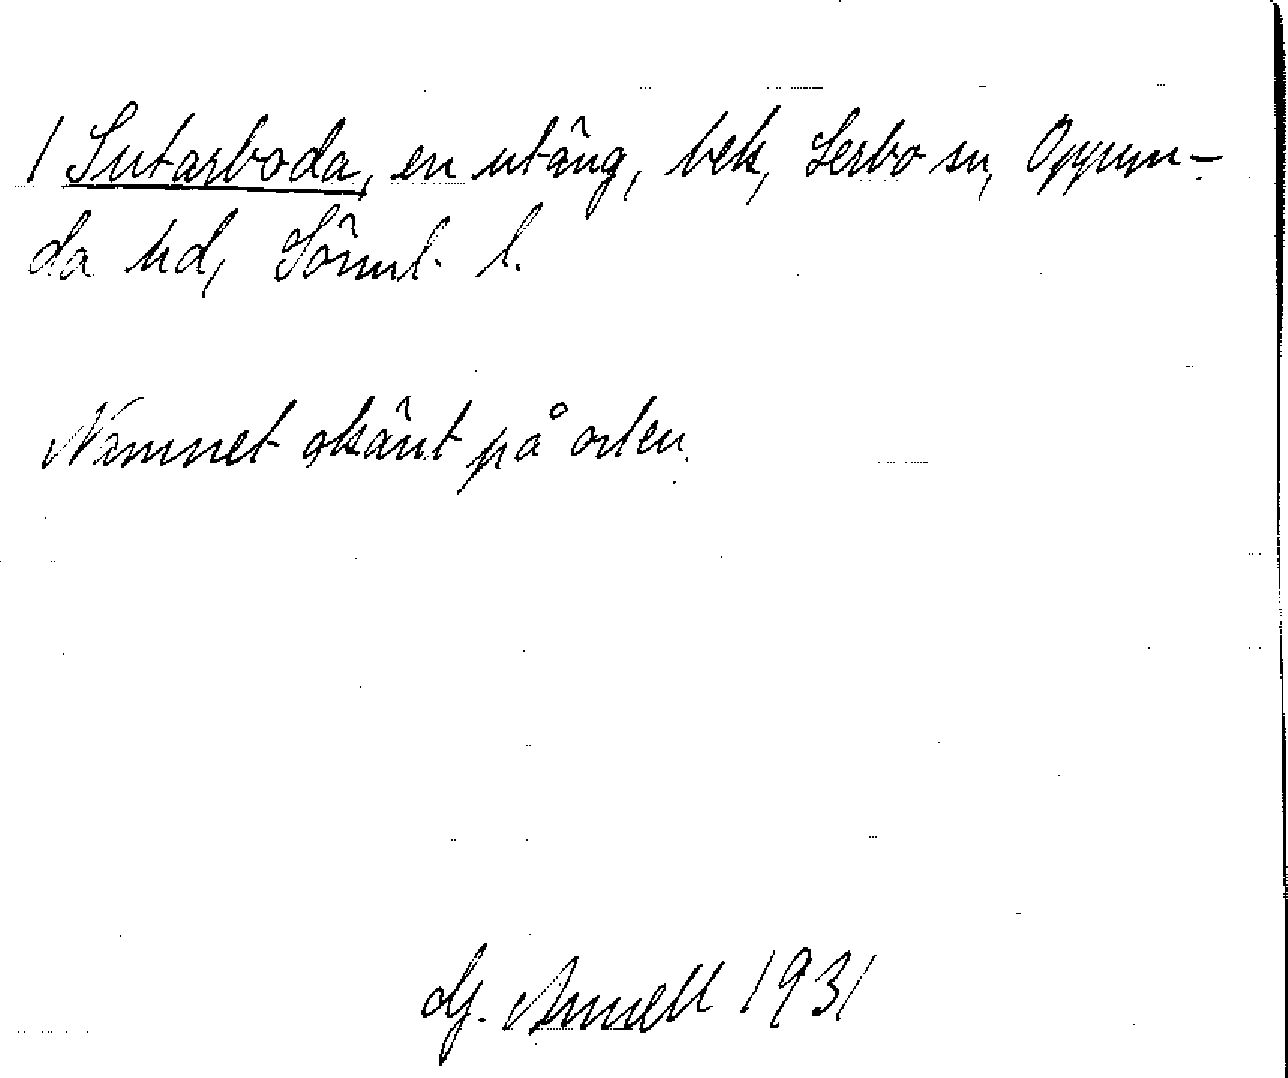 1 Sutarboda, en utäng, bek, Lerbo sn, Oppun-
da hd, Sörml. l.
Namnet okänt på orten.
G. Arnell 1931